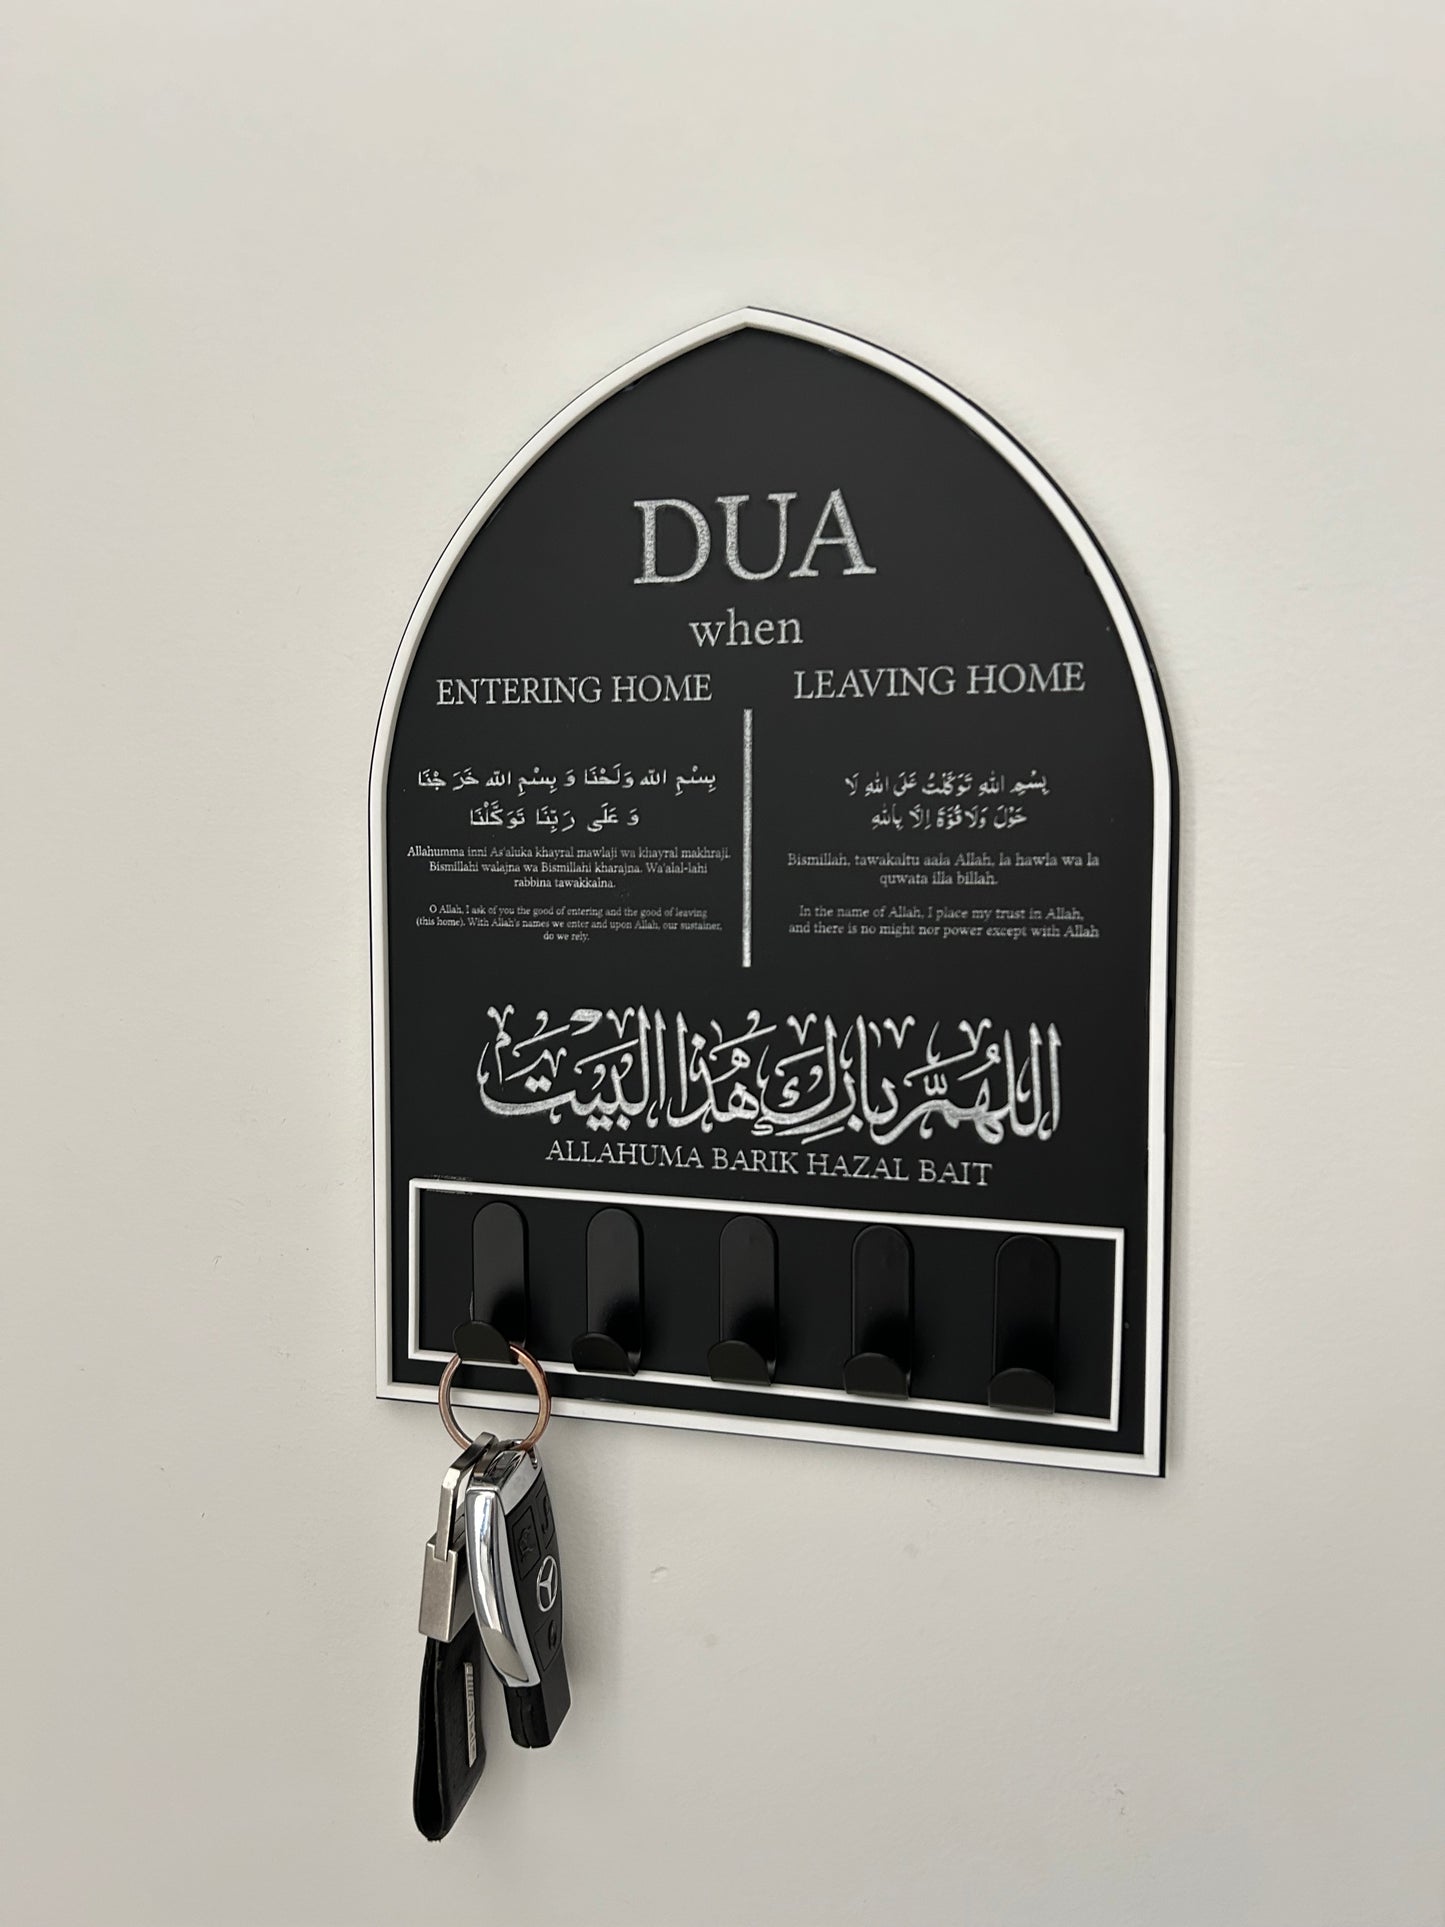 DUA
when
ENTERING HOME
بِسْمِ اللّٰه وَلَجْنَا وَ بِسْمِ اللّٰه خَرَجْنَا
وَ عَلَى رَبِّنَا تَوَكَّلْنَا
Allahumma inni As'aluka khayral mawlaji wa khayral makhraji.
Bismillahi walajna wa Bismillahi kharajna. Wa'alal-lahi
rabbina tawakkalna.
O Allah, I ask of you the good of entering and the good of leaving
(this home). With Allah's names we enter and upon Allah, our sustainer,
do we rely.
LEAVING HOME
بِسْمِ اللهِ تَوَكَّلْتُ عَلَى اللهِ لَا
حَوْلَ وَلَا قُوَّةَ اِلَّا بِاللهِ
Bismillah, tawakaltu aala Allah, la hawla wa la
quwata illa billah.
In the name of Allah, I place my trust in Allah,
and there is no might nor power except with Allah
اللهُمَّ بَارِك هٰذَا البَيْت
ALLAHUMA BARIK HAZAL BAIT